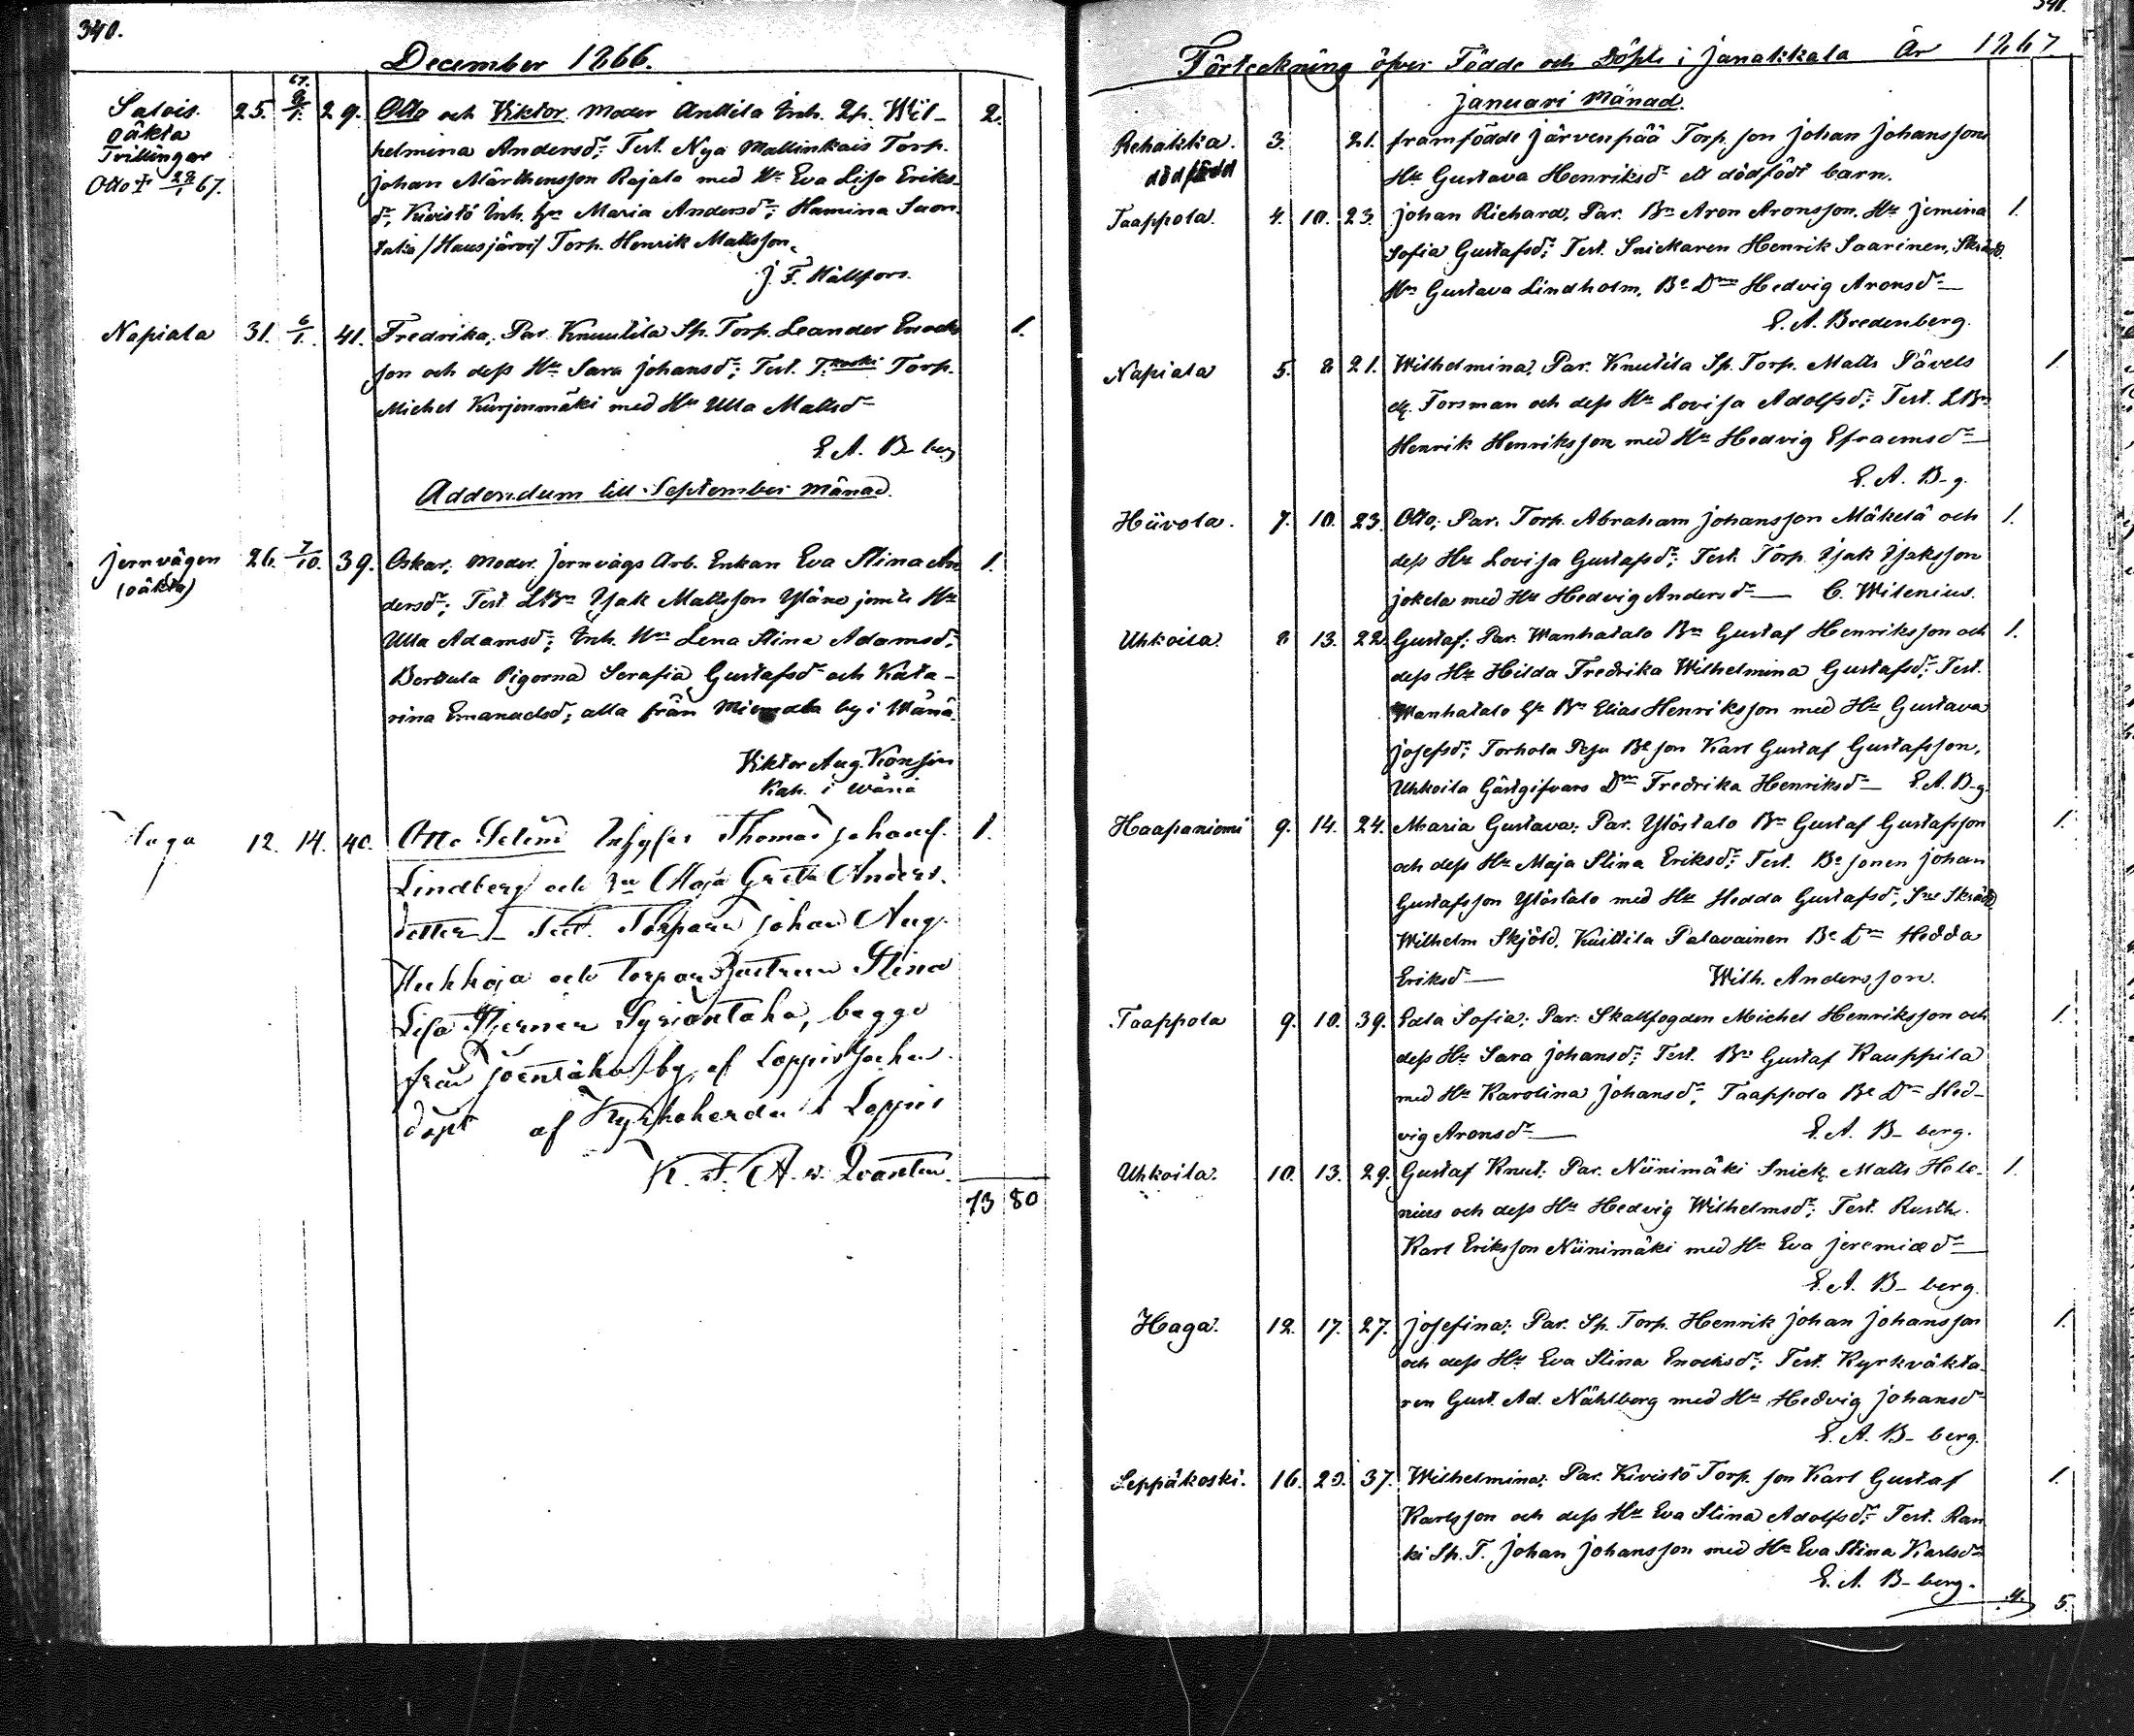 340.
December 1866.
Salois. 25. 67. 8/1. 29. Otto och Viktor. Moder Anttila Inh. Qp. Wil- 2.
oäkta helmina Andersdr; Test. Nya Mallinkais Torp.
Tvillingar Johan Mårthensson Rajala med Hu Eva Lisa Eriks-
Otto † 28/1 67. dr, Kivistö Inh. Maria Andersdr; Hamina Saon-
taka /Hausjärvi/ Torp. Henrik Mattsson.
J. F. Hällfors.
Napiala 31. 6/1. 41. Fredrika, Par. Knuutila Sp. Torp. Leander Enocks 1.
son och dess Hu Sara Johansdr; Test. T.koski Torp.
Michel Kurjenmäki med Hu Ulla Mattsdr
E. A. B-berg
Addendum till September Månad.
Jernvägen 26. 7/10. 39. Oskar; Moder. Jernvägs Arb. Enkan Eva Stina An 1.
(oäkta) dersdr; Test. LBn Isak Mattsson Yläne jemte Hu
Ulla Adamsdr; Inh. Hu Lena Stina Adamsdr,
Bertula Pigorna Serafia Gustafsdr och Kata-
rina Emanuelsdr; alla från by i Wånå.
Viktor Aug.
Kap. i Wånå
Haga 12. 14. 40. Otto Selim Inhyses Thomas Johansf. 1.
Lindberg och Maja Greta Anders.
dotter – Test. Torparen Johan Aug.
och Torpar Stina
Lisa Syrjäntaka, begge
från by, af Loppis Socken
döpt af Kyrkoherden i Loppis
K. F. A. v. Qvanten.
73 80
341.
Förteckning öfver Födde och Döpte i Janakkala År 1867
Januari Månad.
Rehakka. 3. 21. framfödde Järvenpää Torp. son Johan Johanssons
dödfödd Hu Gustava Henriksdr ett dödfödt barn.
Taappola. 4. 10. 23. Johan Richard, Par. Bn Aron Aronsson, Hu Jemina 1.
Sofia Gustafsdr; Test. Snickaren Henrik Saarinen, Skrädd.
Hu Gustava Lindholm, Be Drn Hedvig Aronsdr
E. A. Bredenberg.
Napiala 5. 8 21. Wilhelmina; Par. Knutila Sp. Torp. Matts Påvels 1.
Forsman och dess Hu Lovisa Adolfsdr; Test. LBn
Henrik Henriksson med Hu Hedvig Efraemsdr
E. A. B-g.
Hiivola. 7. 10. 23. Otto; Par. Torp. Abraham Johansson Mäkelä och 1.
dess Hu Lovisa Gustafsdr; Test. Torp. Isak Isaksson
Jokela med Hu Hedvig Andersdr C. Wilenius.
Uhkoila. 8 13. 22. Gustaf; Par. Wanhatalo Bn Gustaf Henriksson och 1.
dess Hu Hilda Fredrika Wilhelmina Gustafsdr; Test.
Wanhatalo Bn Elias Henriksson med Hu Gustava
Josefsdr; Torhola Peju Be son Karl Gustaf Gustafsson,
Uhkoila Gästgifvars Drn Fredrika Henriksdr E. A. B-g.
Haapaniemi 9. 14. 24. Maria Gustava; Par. Ylöstalo Bn Gustaf Gustafsson 1.
och dess Hu Maja Stina Eriksdr; Test. Be sonen Johan
Gustafsson Ylöstalo med Hu Hedda Gustafsdr, Skrädd
Wilhelm Skjöld, Kuittila Palavainen Be Drn Hedda
Eriksdr Wilh. Andersson.
Taappola 9. 10. 39. Edla Sofia; Par. Skallfogden Michel Henriksson och 1.
dess Hu Sara Johansdr; Test. Bn Gustaf Kauppila
med Hu Karolina Johansdr, Taappola Be Drn Hed-
vig Aronsdr E. A. B-berg.
Uhkoila. 10. 13. 29. Gustaf Knut; Par. Niinimäki Snick. Matts Hele- 1.
nius och dess Hu Hedvig Wilhelmsdr; Test. Rusth.
Karl Eriksson Niinimäki med Hu Eva Jeremiædr
E. A. B-berg.
Haga. 12. 17. 27. Josefina; Par. Sp. Torp. Henrik Johan Johansson 1.
och dess Hu Eva Stina Enocksdr; Test. Kyrkväkta-
ren Gust. Ad. Nåhlberg med Hu Hedvig Johansdr
E. A. B-berg.
Leppäkoski. 16. 20. 37. Wilhelmina; Par. Kivistö Torp. son Karl Gustaf 1.
Karlsson och dess Hu Eva Stina Adolfsdr; Test. Ran
ki Sp. T. Johan Johansson med Hu Eva Stina Karlsdr
E. A. B-berg.
4. 5.